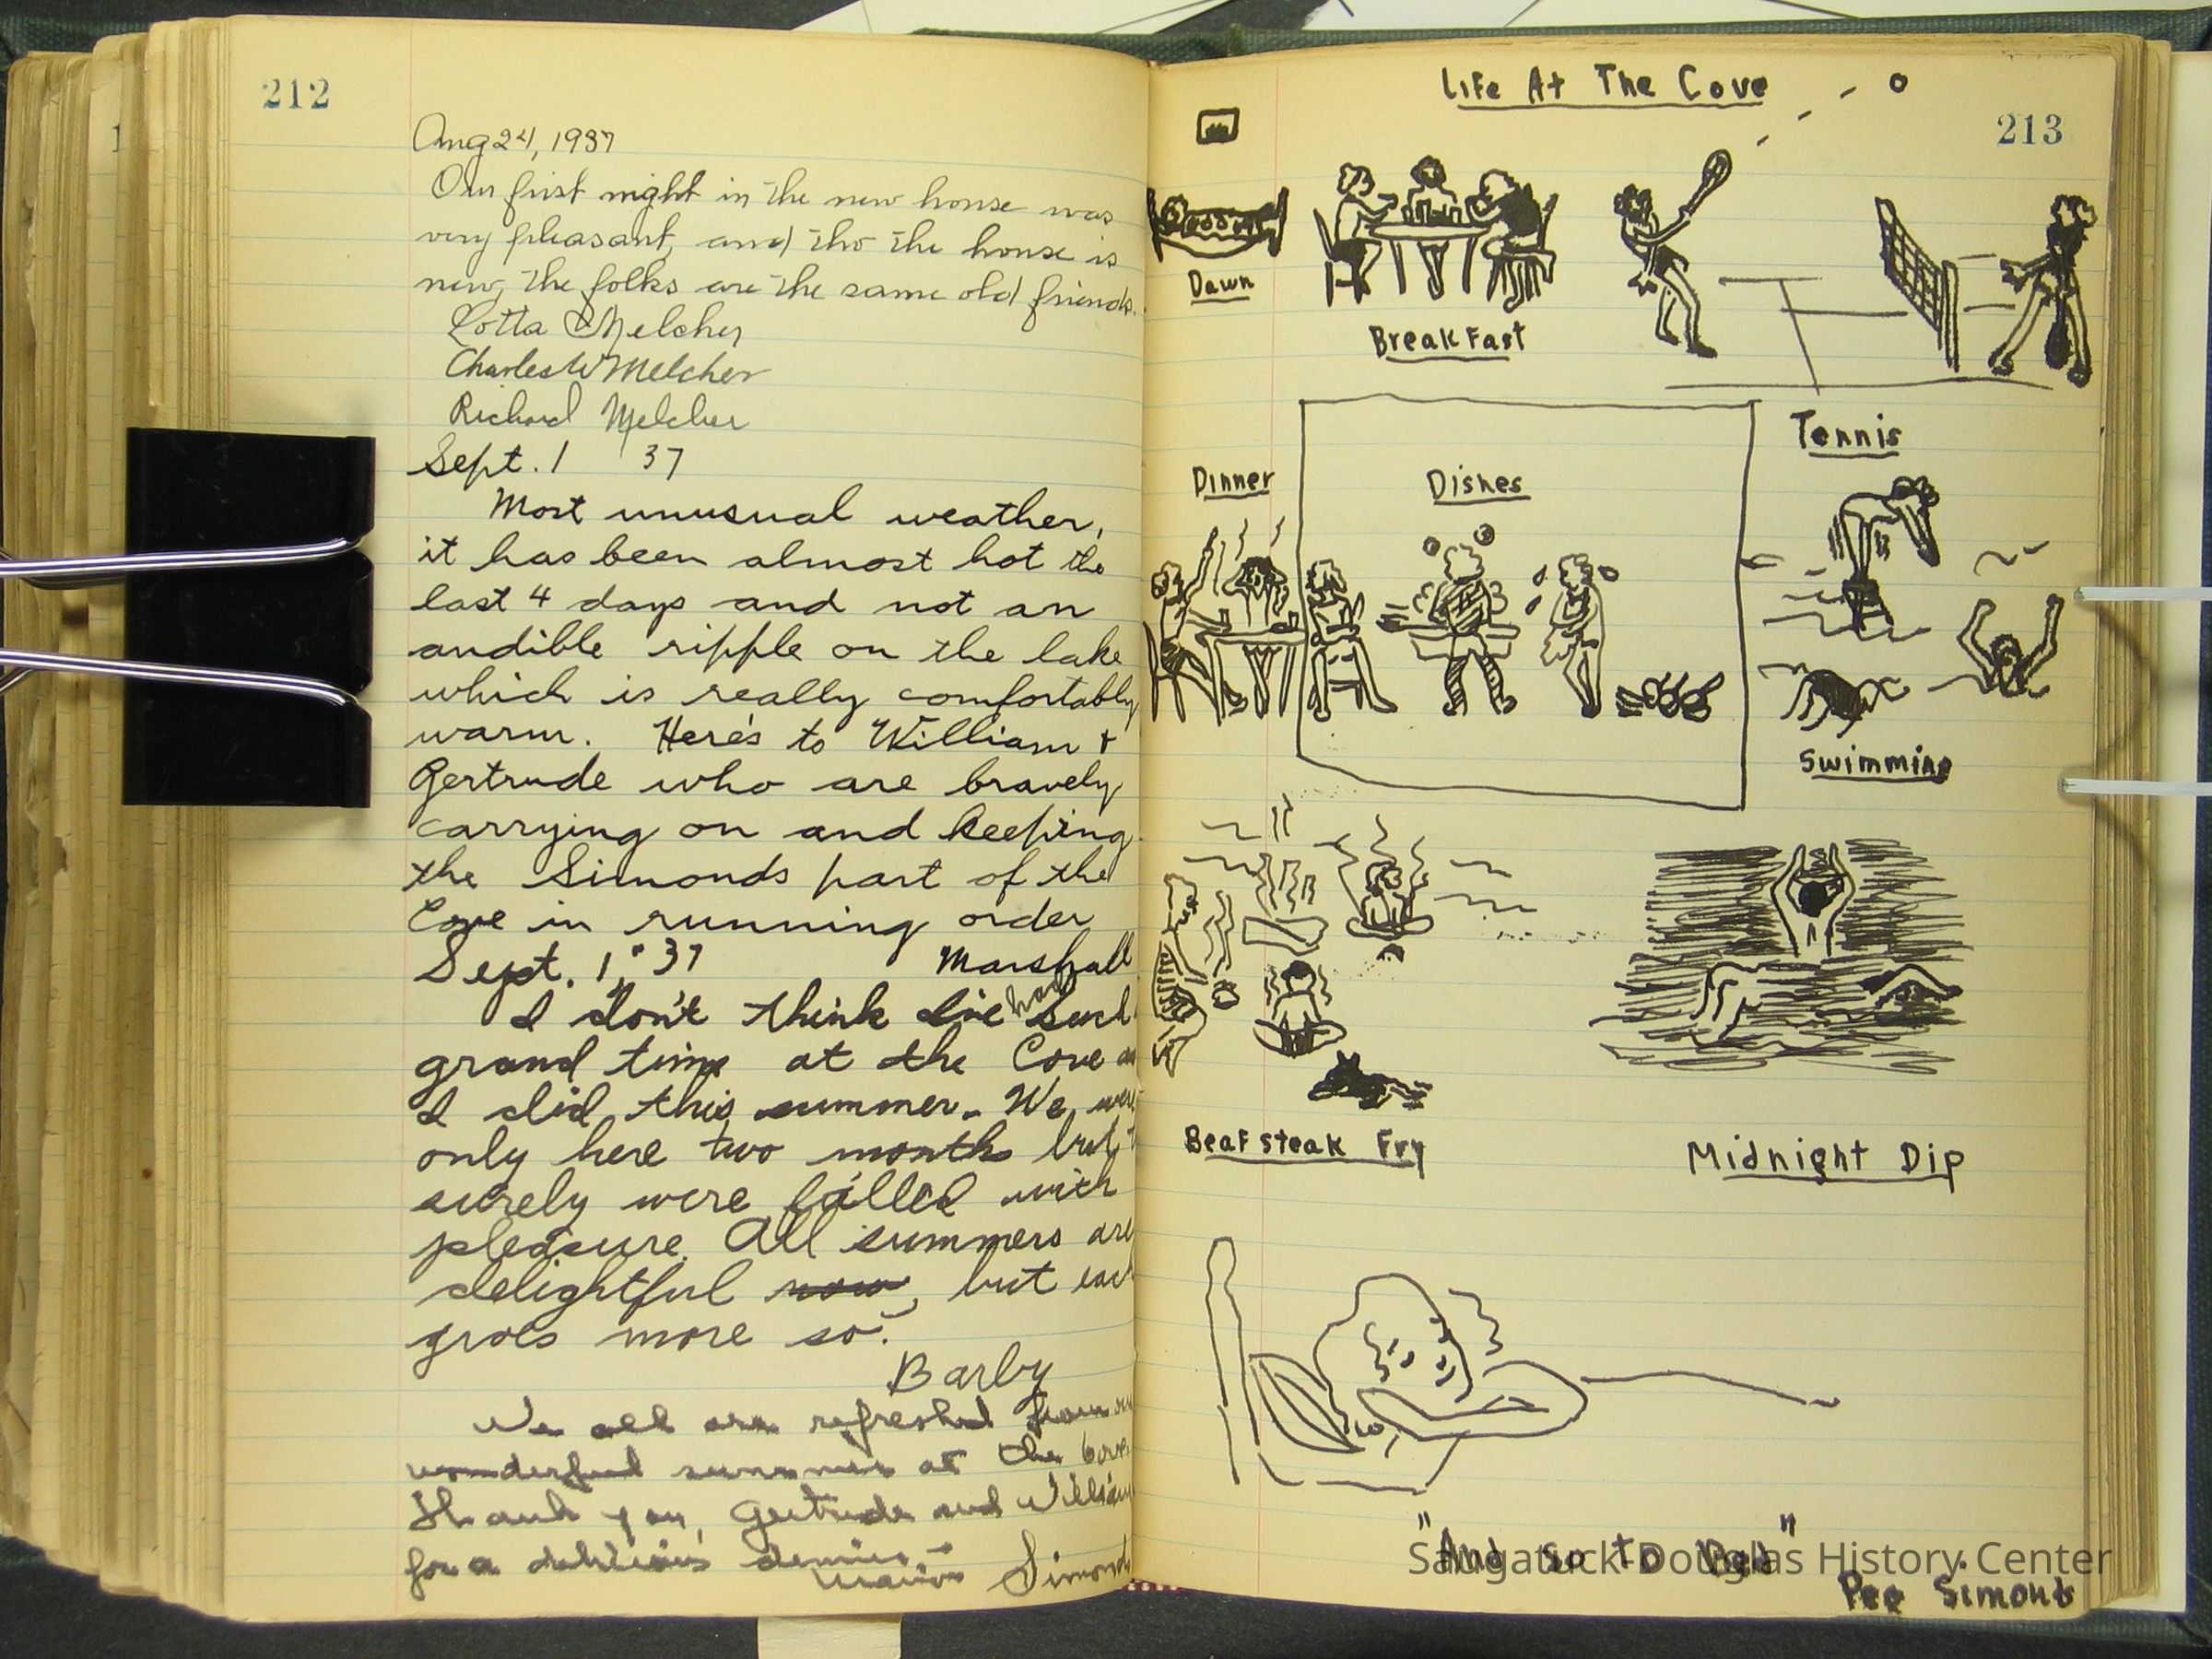 212
Aug 24, 1937
Our first night in the new house was
very pleasant, and tho the house is
new, the folks are the same old friends.
Lotta Melcher
Charles W Melcher
Richard Melcher
Sept. 1 37
Most unusual weather,
it has been almost hot the
last 4 days and not an
audible ripple on the lake
which is really comfortably
warm. Here's to William +
Gertrude who are bravely
carrying on and keeping
the Simonds part of the
Cove in running order
Marshall
Sept. 1, '37
I don't think I've had such
grand time at the Cove as
I did this summer. We were
only here two month but
surely were filled with
pleasure. All summers are
delightful now, but each
grows more so.
Barby
We all are refreshed from our
wonderful summer at the Cove
Thank you, Gertrude and William
for a delicious dinner.
Marion Simonds
Life At The Cove
213
Dawn
Breakfast
Tennis
Dinner
Dishes
Swimming
Beafsteak Fry
Midnight Dip
"And so to Bed"
Peg Simonds
Saugatuck-Douglas History Center